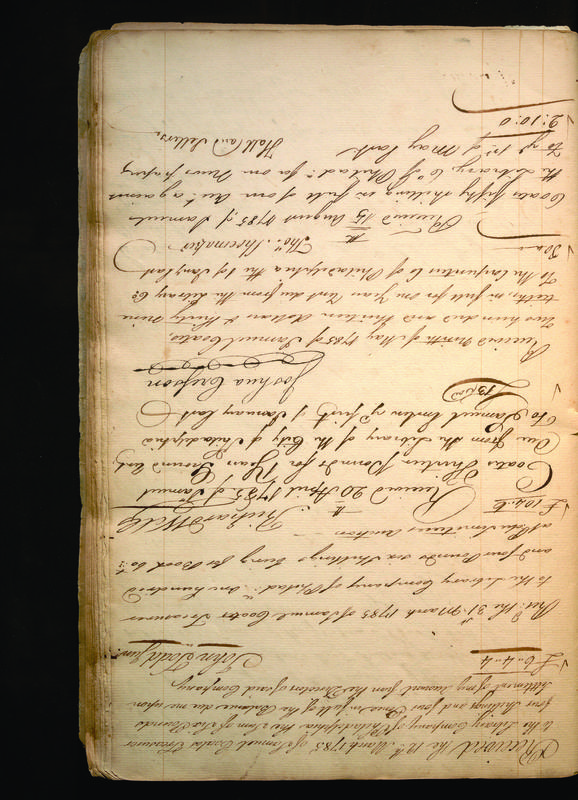 Received the 12th March 1785 of Samuel Coates Treasurer
to the Library Company of Philadelphia the Sum of Six Pounds
four Shillings and four Pence in full of the Balance due me upon
Settlement of my Account from the Directors of said Company.
£ 6.4.4
John Todd Junr.
Recd. the 31st March 1785 of Samuel Coates Treasurer
to the Library Company of Philada. one hundred
and four Pounds six Shillings being for Books bot.
at Auction
£104..6
Richard Wells
Received 20 April 1785 of Samuel
Coates thirteen Pounds for Years Ground Rent
due from the Library of the City of Philadelphia
to Samuel Emlen of first of January last
£13.
Joshua Cresson
Received of May 1785 of Samuel Coates,
Two hundred and Nineteen dollars & thirty nine
in full for one Years Rent due from the Library Co.
To the Carpenters Co. of Philadelphia the 1 of Jany last
Thos. Shoemaker
Received 15 August 1785, of Samuel
Coates fifty shillings in full of our Acct. against
the Library Co. of Philad. for our News papers
to ye. 1st. of May last.
2:10:0
Hall and Sellers